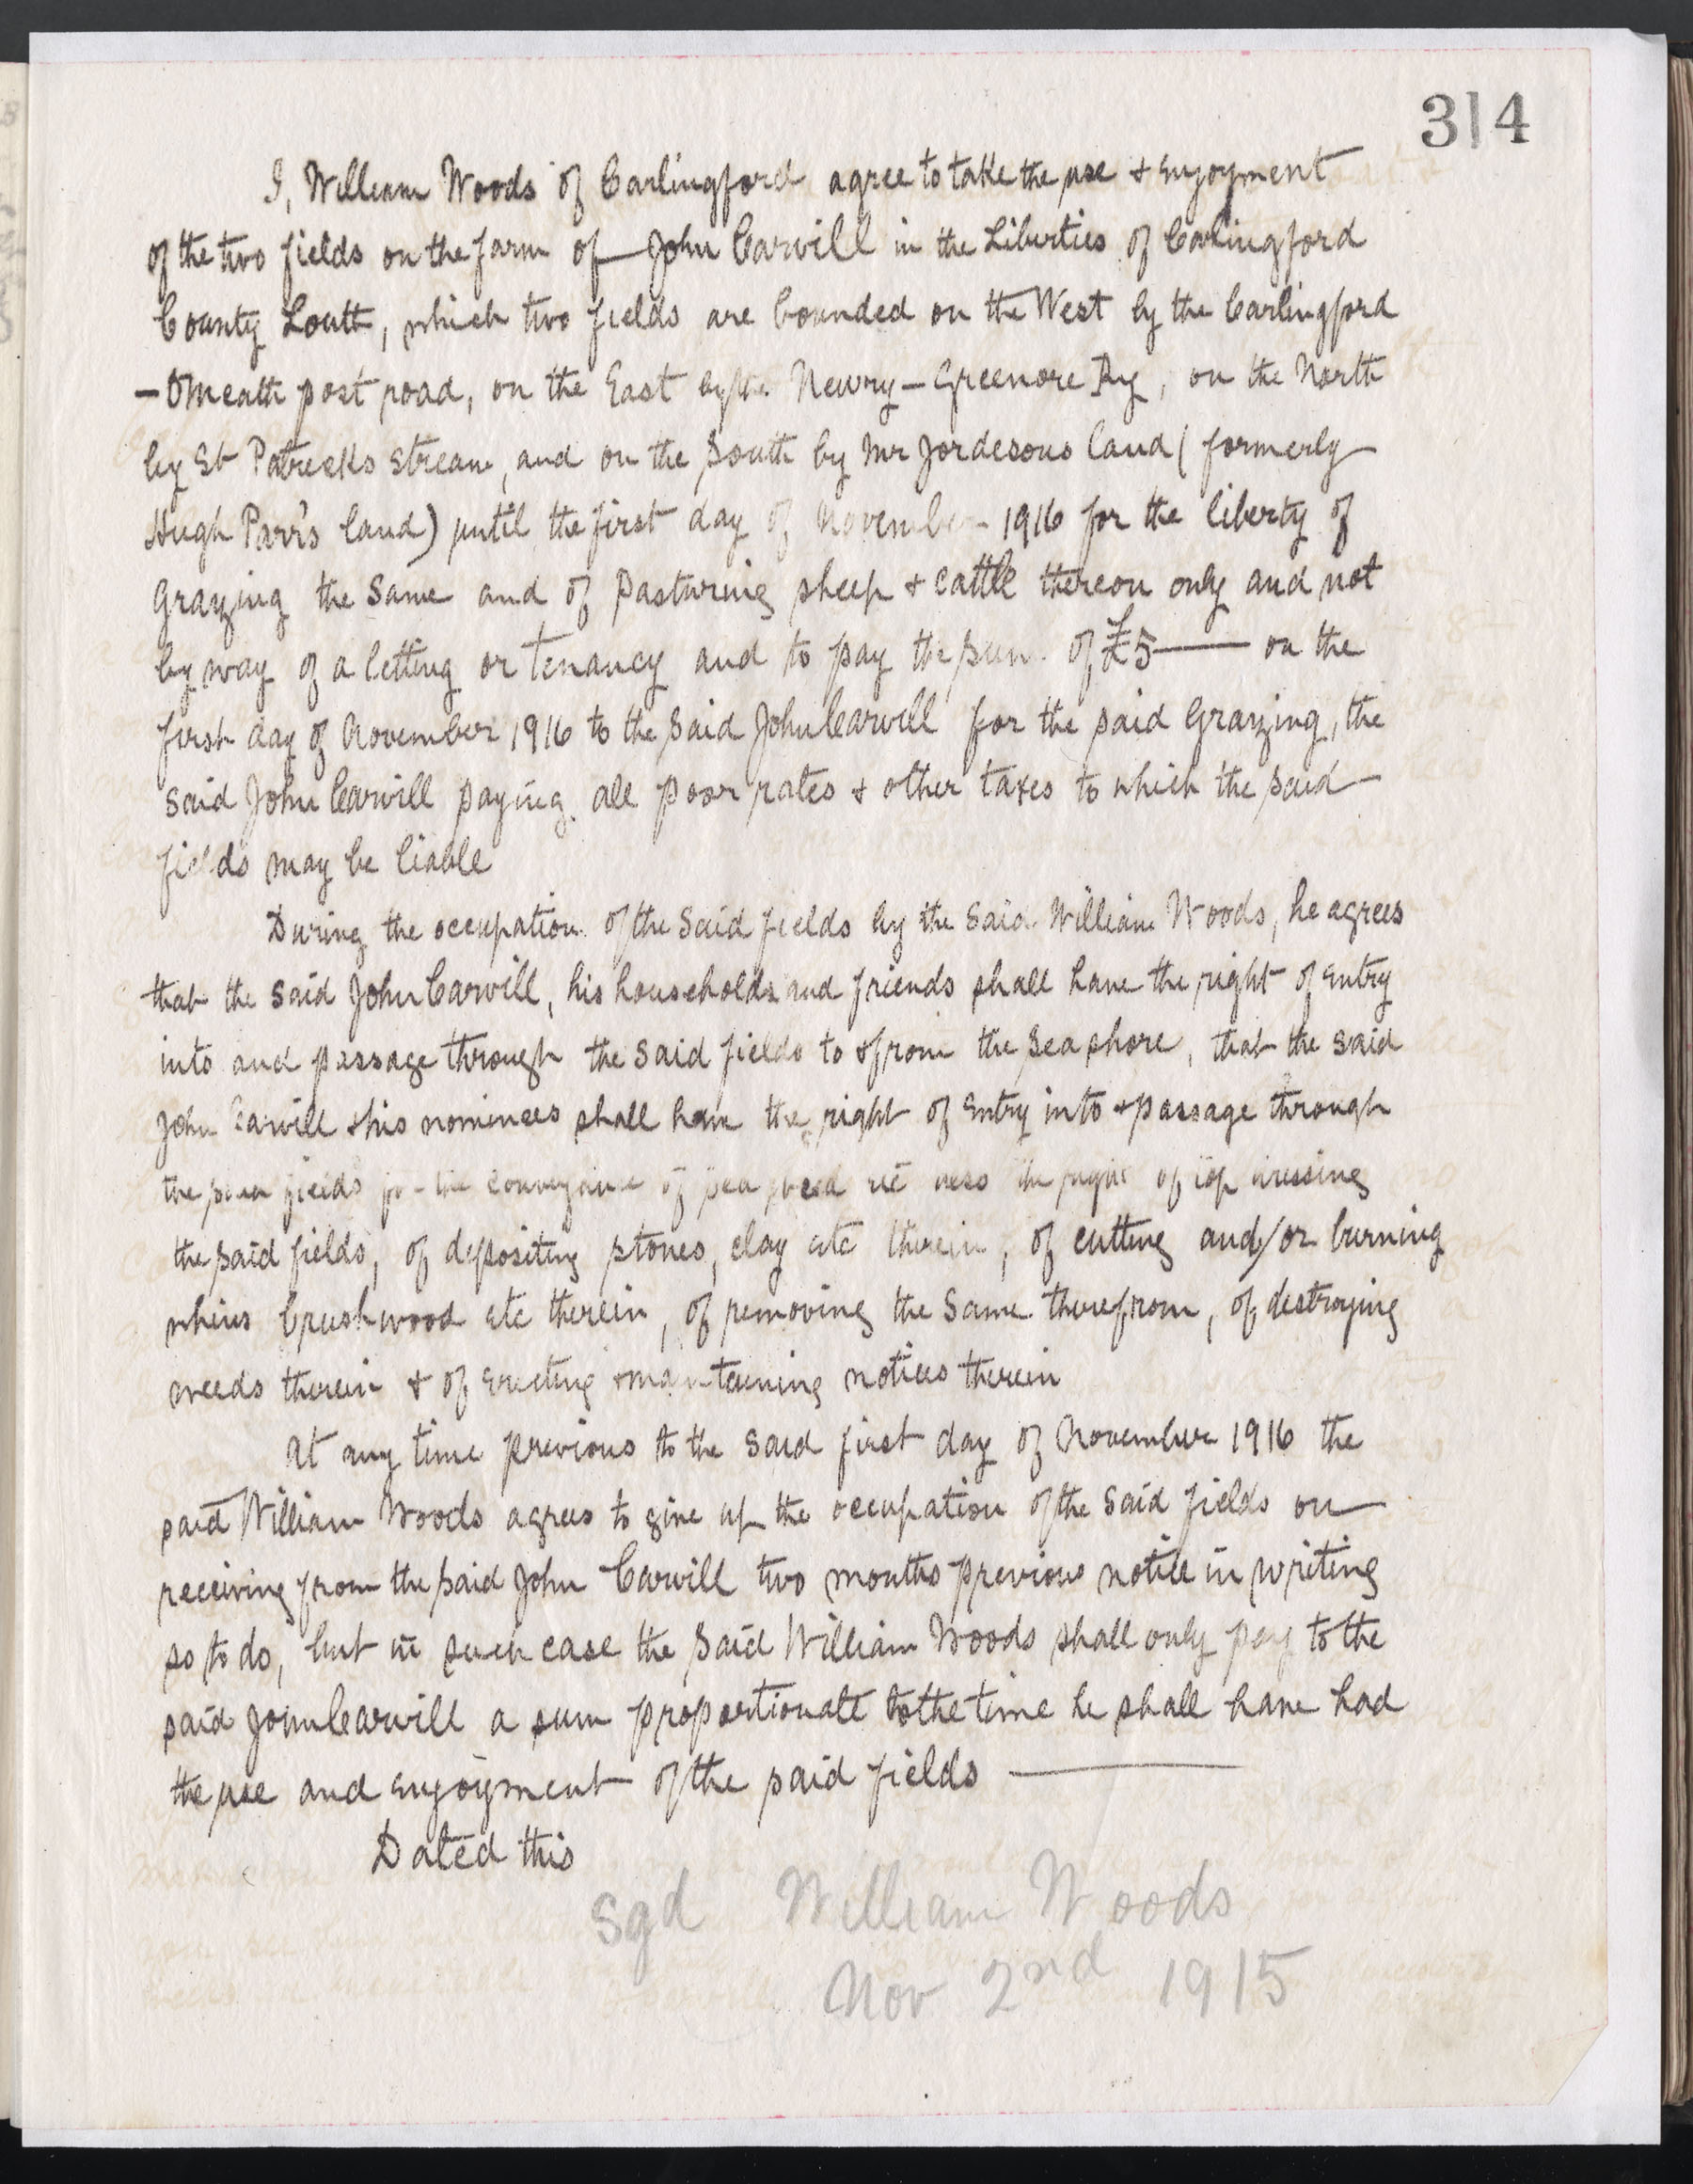 314
I, William Woods of Carlingford agree to take the use & enjoyment
of the two fields on the farm of John Carvill in the Liberties of Carlingford
County Louth, which two fields are bounded on the West by the Carlingford
- Omeath post road, on the East by the Newry - Greenore Ry, on the North
by St Patricks stream, and on the South by Mr Jordesons land (formerly
Hugh Parr's land) until the first day of November 1916 for the liberty of
Grazing the same and of Pasturing sheep & cattle thereon only and not
by way of a letting or tenancy and to pay the sum of £5 —— on the
first day of November 1916 to the said John Carvill for the said Grazing, the
said John Carvill paying all poor rates & other taxes to which the said
fields may be liable
During the occupation of the said fields by the said William Woods, he agrees
that the said John Carvill, his households and friends shall have the right of entry
into and passage through the said fields to & from the sea shore, that the said
John Carvill & his nominees shall have the right of entry into & passage through
the said fields for the conveyance of sea weed etc also the right of top dressing
the said fields, of depositing stones, clay etc therein, of cutting and/or burning
whins brushwood etc therein, of removing the same therefrom, of destroying
weeds therein & of erecting & maintaining notices therein
At any time previous to the said first day of November 1916 the
said William Woods agrees to give up the occupation of the said fields on
receiving from the said John Carvill two months previous notice in writing
so to do, but in such case the said William Woods shall only pay to the
said John Carvill a sum proportionate to the time he shall have had
the use and enjoyment of the said fields ——
Dated this
Sgd William Woods
Nov 2nd 1915